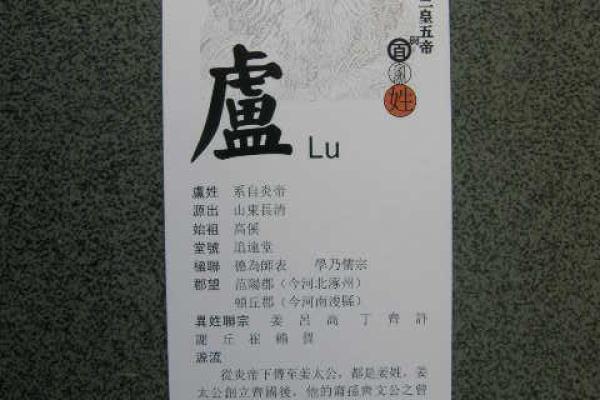 三皇五帝
與
百家姓
盧
Lu
盧姓 系自炎帝
源出 山東長清
始祖 高傒
堂號 追遠堂
楹聯 德為師表 學乃儒宗
郡望 范陽郡（今河北涿州）
頓丘郡（今河南浚縣）
異姓聯宗 姜 呂 高 丁 齊 許
謝 丘 崔 賴
源流
從炎帝下傳至姜太公，都是姜姓，姜
太公創立齊國後，他的裔孫齊文公之曾